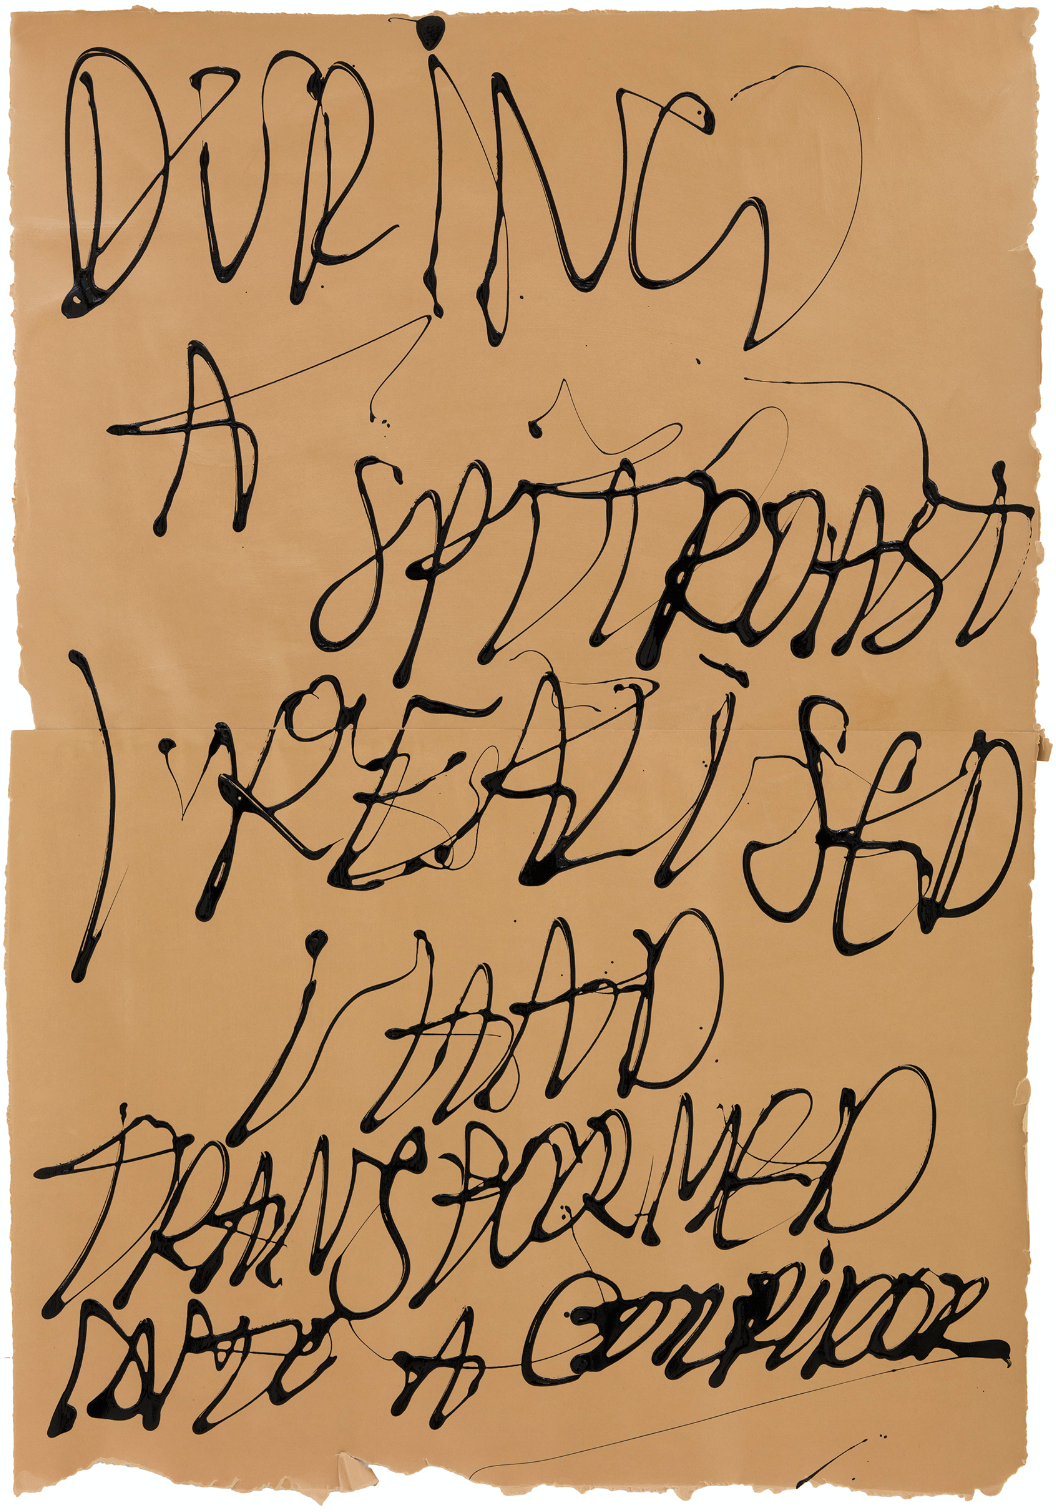 DURING
A
SPITROAST
I REALISED
I HAD
TRANSFORMED
INTO A CORRIDOR